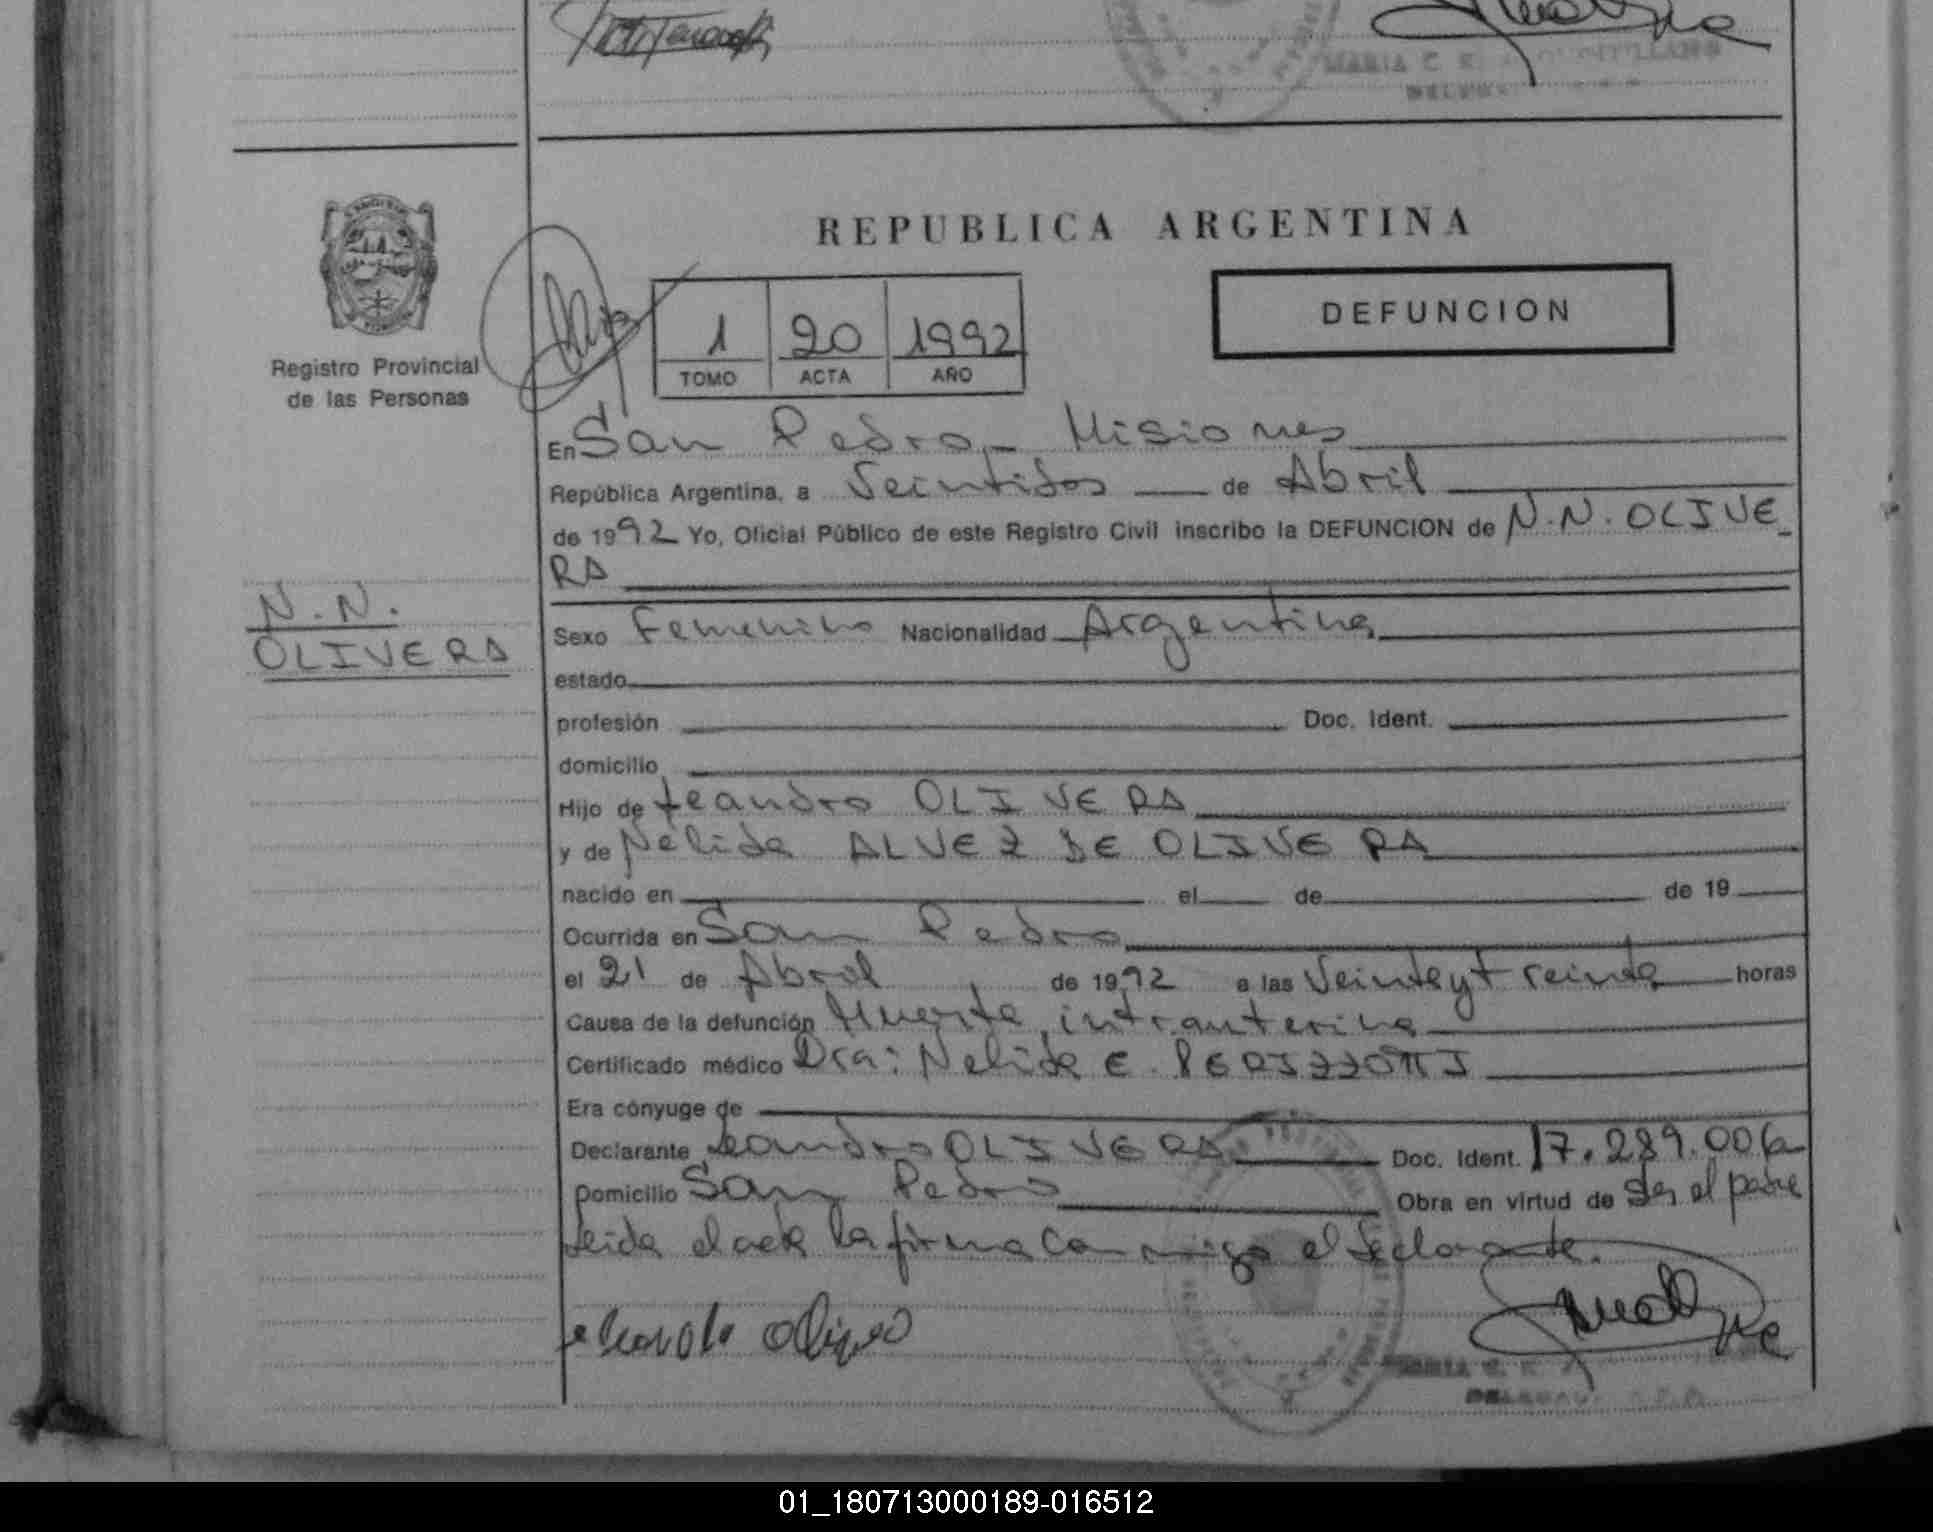 REPUBLICA ARGENTINA
DEFUNCION
Registro Provincial
de las Personas
1 20 1992
TOMO ACTA AÑO
En San Pedro - Misiones
República Argentina, a Veintidos de Abril
de 1992 Yo, Oficial Público de este Registro Civil inscribo la DEFUNCION de N.N. OLIVE
RA
N.N.
OLIVERA
Sexo Femenino Nacionalidad Argentina
estado
profesión Doc. Ident.
domicilio
Hijo de Leandro OLIVERA
y de Nélida ALVEZ DE OLIVERA
nacido en el de de 19
Ocurrida en San Pedro
el 21 de Abril de 1992 a las Veinte y treinta horas
Causa de la defunción Muerte intrauterina
Certificado médico Dra: Nelida E.
Era cónyuge de
Declarante Leandro OLIVERA Doc. Ident. 17.289.006
Domicilio San Pedro Obra en virtud de ser el padre
Leida el acta la firma conmigo el declarante.
MARIA C.
01_180713000189-016512